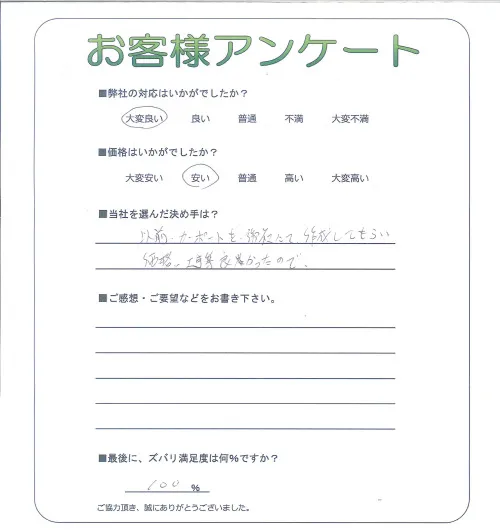 お客様アンケート
■弊社の対応はいかがでしたか？
大変良い 良い 普通 不満 大変不満
■価格はいかがでしたか？
大変安い 安い 普通 高い 大変高い
■当社を選んだ決め手は？
以前、カーポートを、御社にて、作成してもらい
価格、工事等良かったので、
■ご感想・ご要望などをお書き下さい。
■最後に、ズバリ満足度は何％ですか？
100 ％
ご協力頂き、誠にありがとうございました。